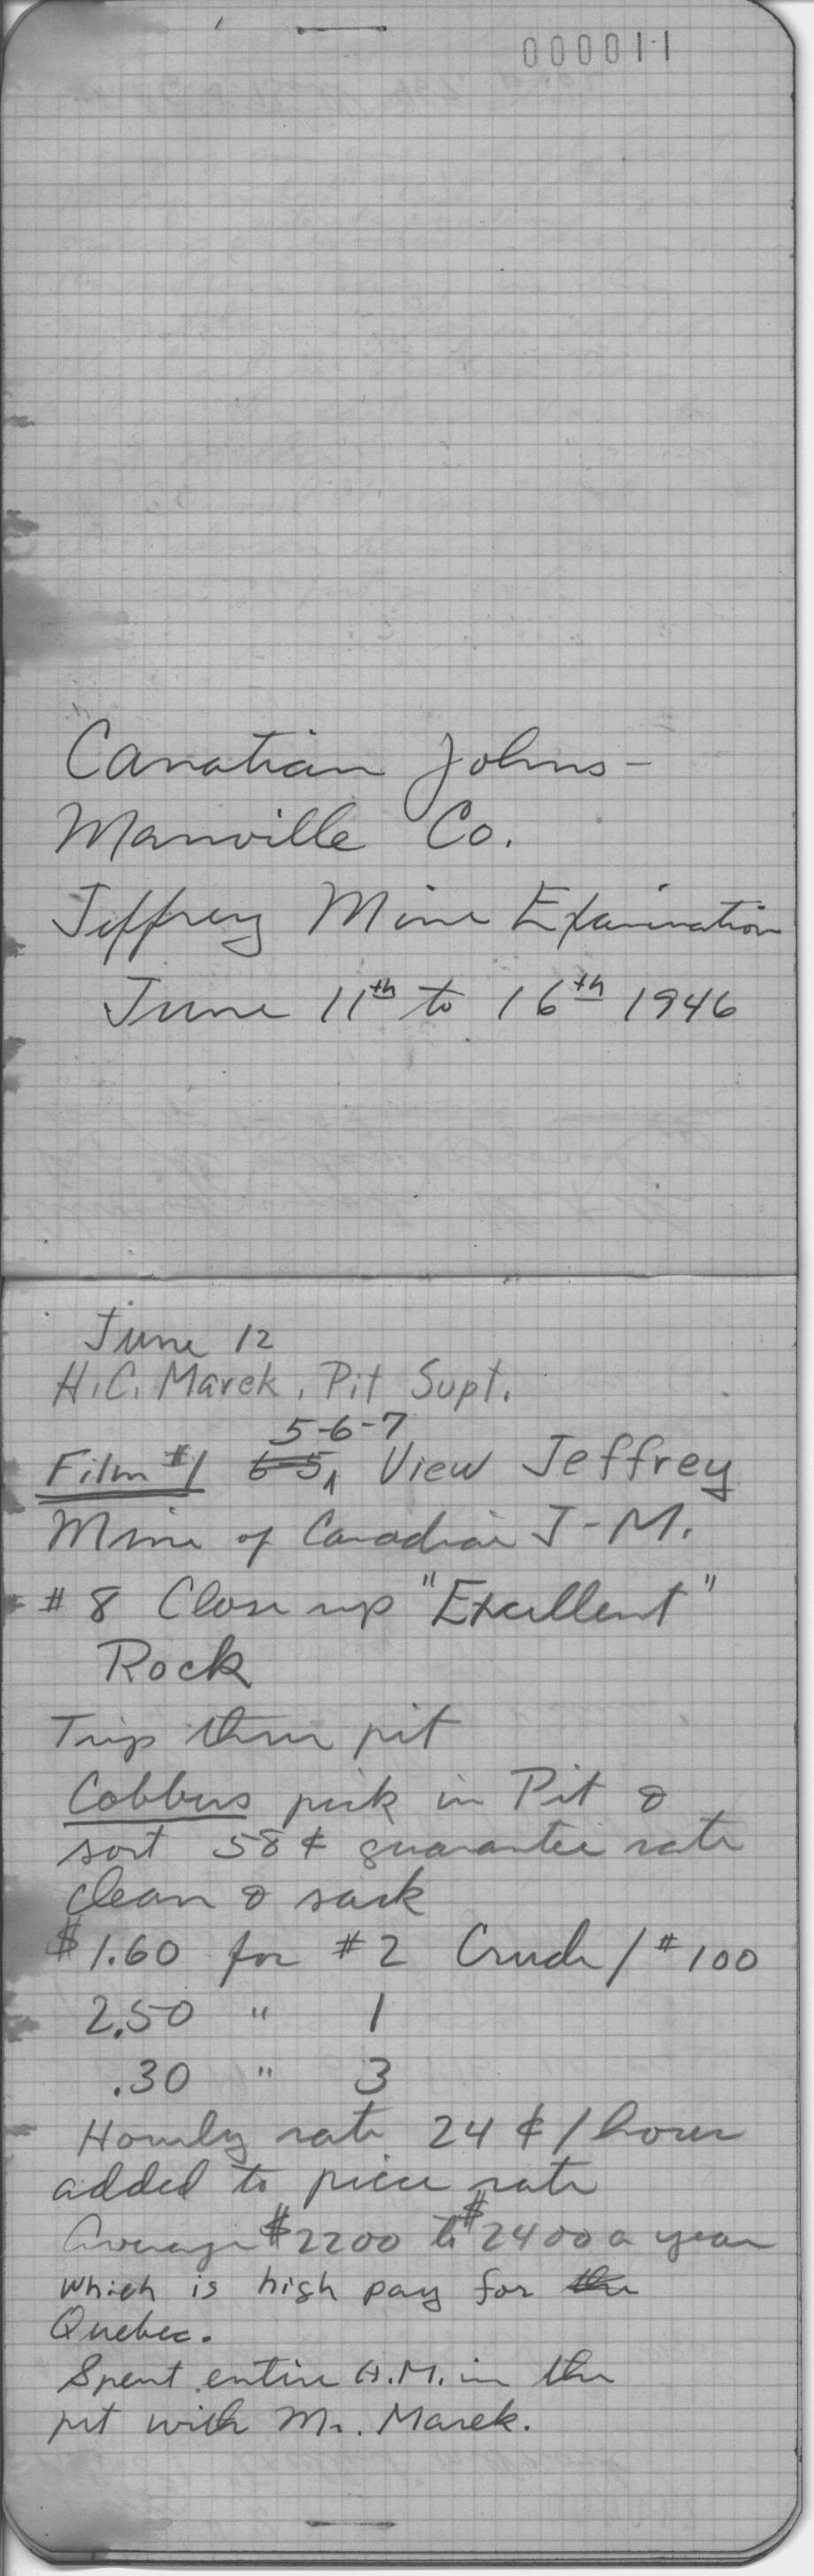 000011
Canatian Johns-
Manville Co.
Jeffrey Mine Examination
June 11th to 16th 1946
June 12
H.C. Marek, Pit Supt.
5-6-7
Film #1 6-5 View Jeffrey
Mine of Canadian J-M.
#8 Close up "Excellent"
Rock
Trip thru pit
Cobbers pick in Pit &
sort 58¢ guarantee rate
clean & sack
$1.60 for #2 Crude/#100
2.50 " 1
.30 " 3
Hourly rate 24¢/hour
added to piece rate
Average $2200 to $2400 a year
which is high pay for the
Quebec.
Spent entire A.M. in the
pit with Mr. Marek.